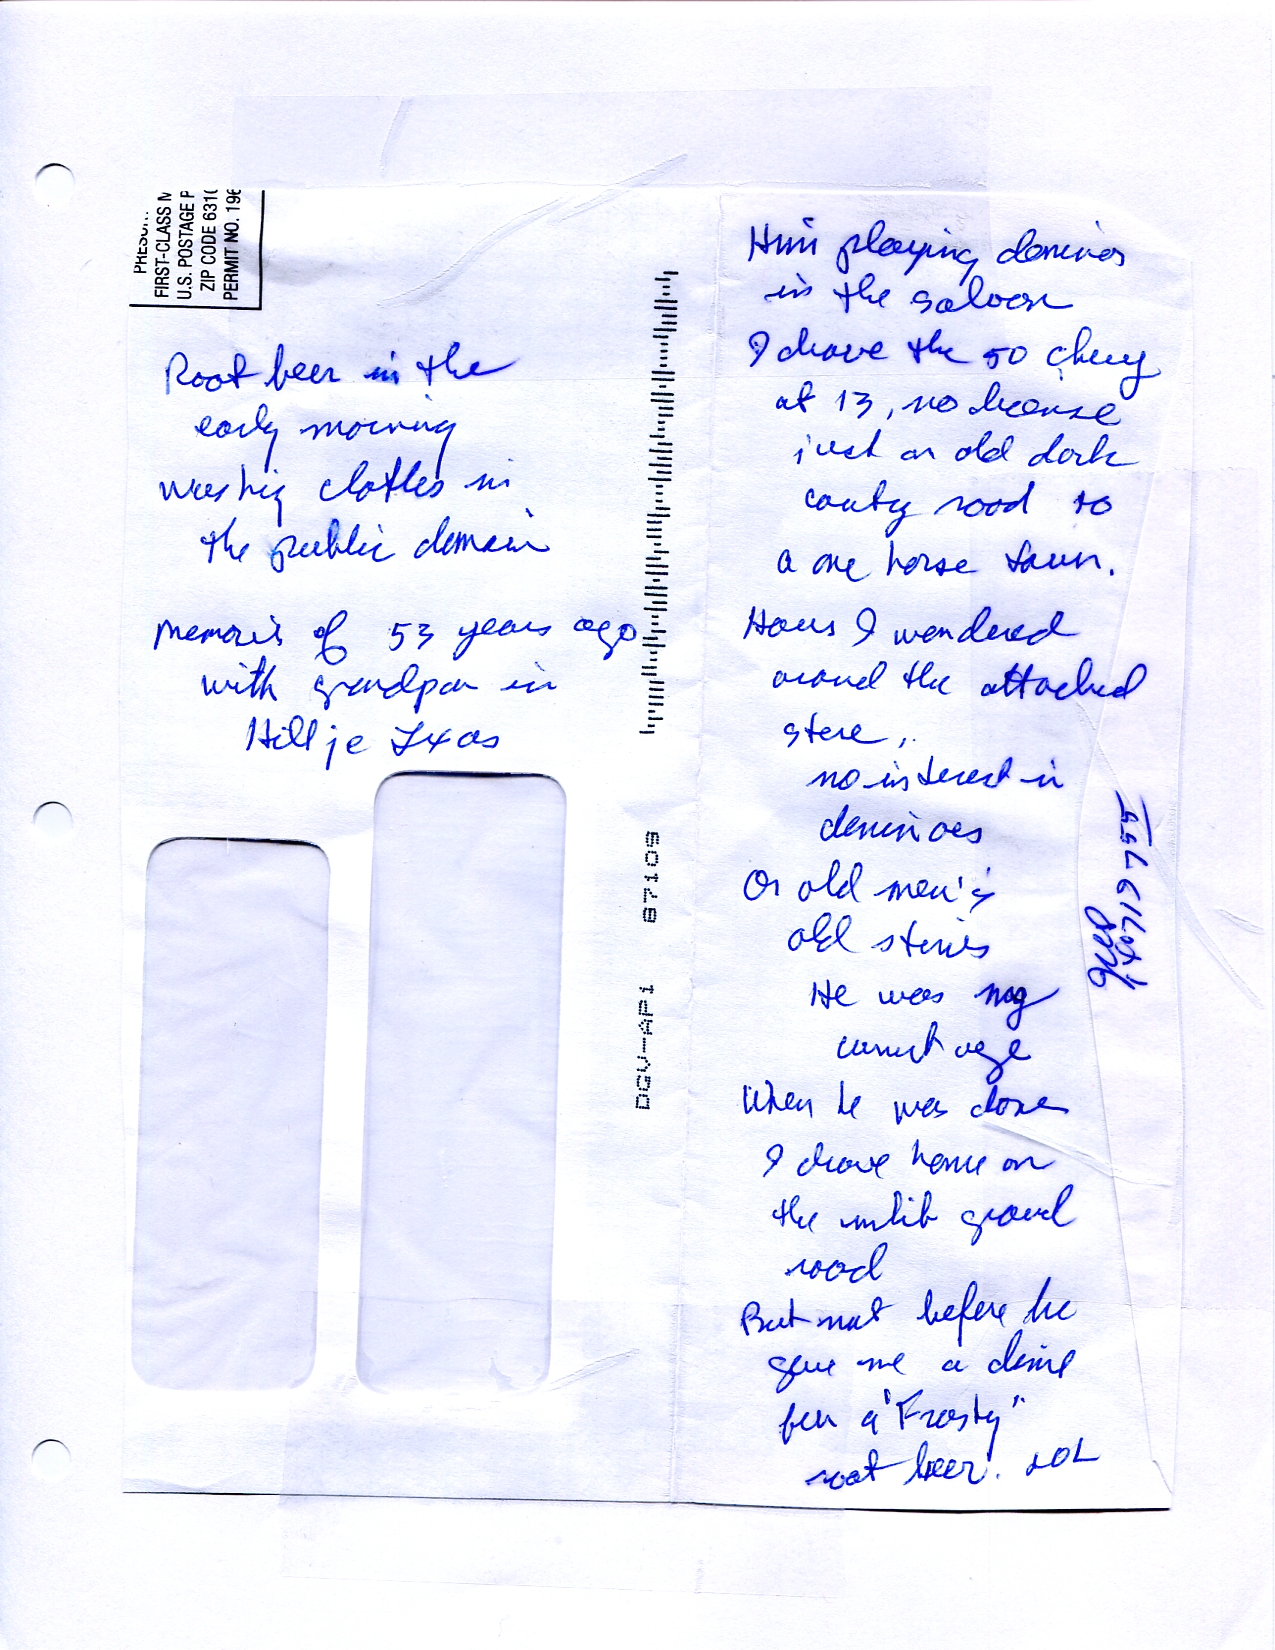 PRESOR
FIRST-CLASS M
U.S. POSTAGE P
ZIP CODE 631
PERMIT NO. 196
Root beer in the
early morning
washing clothes in
the public domain
memories of 53 years ago
with grandpa in
Hillje Texas
DGV-AP1 87109
Him playing dominos
in the saloon
I drove the 50 chevy
at 13, no license
just an old dark
county road to
a one horse town.
Hours I wandered
around the attached
store,
no interest in
dominoes
Or old men's
old stories
He was my
current age
When he was done
I drove home on
the unlit gravel
road
But not before he
gave me a dime
for a "Frosty"
root beer. LOL
755